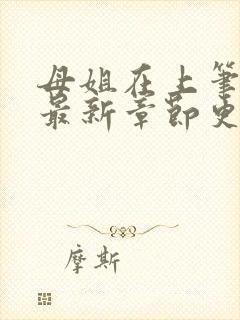 母姐在上笔
最新章节史
摩斯